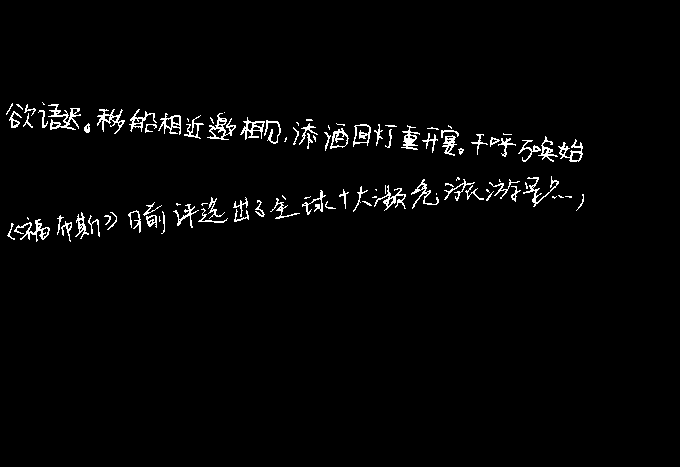 欲语迟。移船相近邀相见,添酒回灯重开宴。千呼万唤始
《福布斯》日前评选出了全球十大濒危旅游景点,